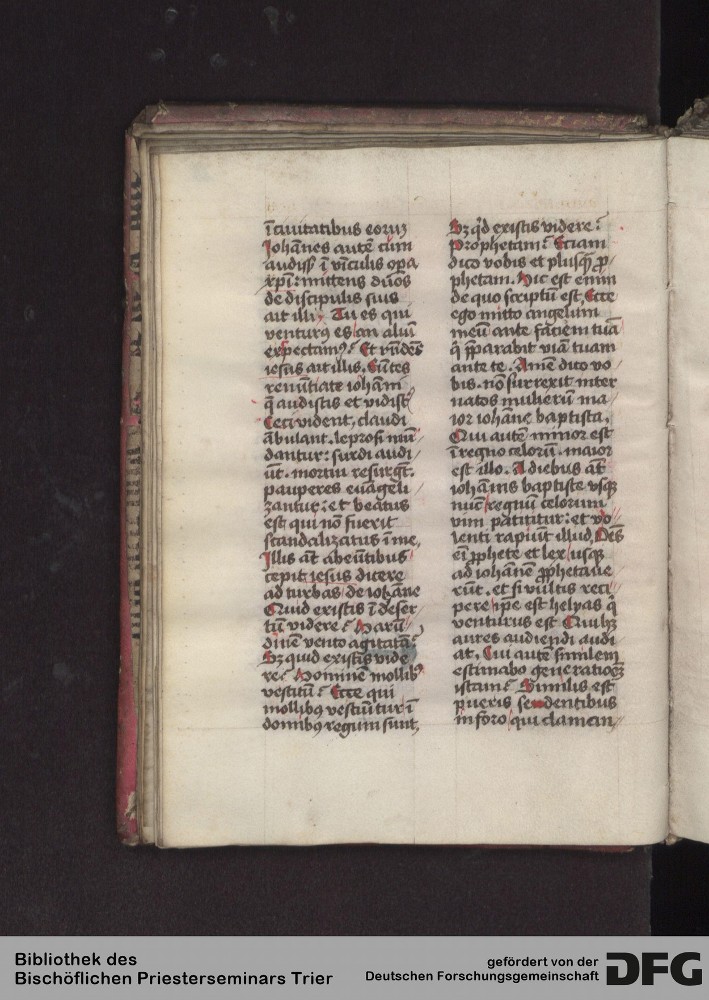 ī ciuitatibus eoruʒ
Iohānes autē cūm
audiſſ ī vīculis oꝑa
xp̄i: mittens duos
de diſcipulis ſuis
ait illi. Tu es qui
venturꝰ es an aliū
expectamꝰ? Et rn̄dēs
ieſus ait illis. Eūtes
renūtiate iohāni
q̄ audiſtis et vidiſt
Ceci vident, claudi
ābulant. leproſi mū
dantur: ſurdi audi
ūt. mortui reſurgūt.
pauperes euāgeli
zantur: et beatus
eſt qui nō fuerit
ſcandalizatus ī me,
Illis āt abeūtibus
cepit ieſus dicere
ad turbas de iohāne
Quid exiſtis ī deſer
tū videre? Harū
dinē vento agitatā?
Sʒ quid exiſtis vide
re? Hominē mollibꝰ
veſtitū? Ecce qui
mollibꝰ veſtiūtur ī
domibꝰ regum ſunt,
Sʒ qͥd exiſtis videre?
Prophetam? Etiam
dico vobis et pluſq̄ ꝓ
phetam. Hic eſt enim
de quo ſcriptū eſt, Ecce
ego mitto angelum
meū ante faciem tuā
q̄ p̄parabit viā tuam
ante te. Amē dico vo
bis. nō ſurrexit inter
natos mulierū ma
ior iohāne baptiſta,
Qui autē minor eſt
ī regno celorū. maior
eſt illo. A diebus āt
iohānis baptiſte vſqʒ
nūc regnū celorum
vim patititur: et vo
lenti rapiūt illud, Oēs
eī ꝓphete et lex uſqʒ
ad iohānē ꝓphetaue
rūt. et ſi vultis reci
pere ip̄e eſt helyas qͥ
venturus eſt Qui hʒ
aures audiendi audi
at. Cui autē ſimilem
eſtimabo generationeʒ
iſtam? Similis eſt
pueris ſedentibus
in foro qui claman
Bibliothek des
Bischöflichen Priesterseminars Trier
gefördert von der
Deutschen Forschungsgemeinschaft
DFG